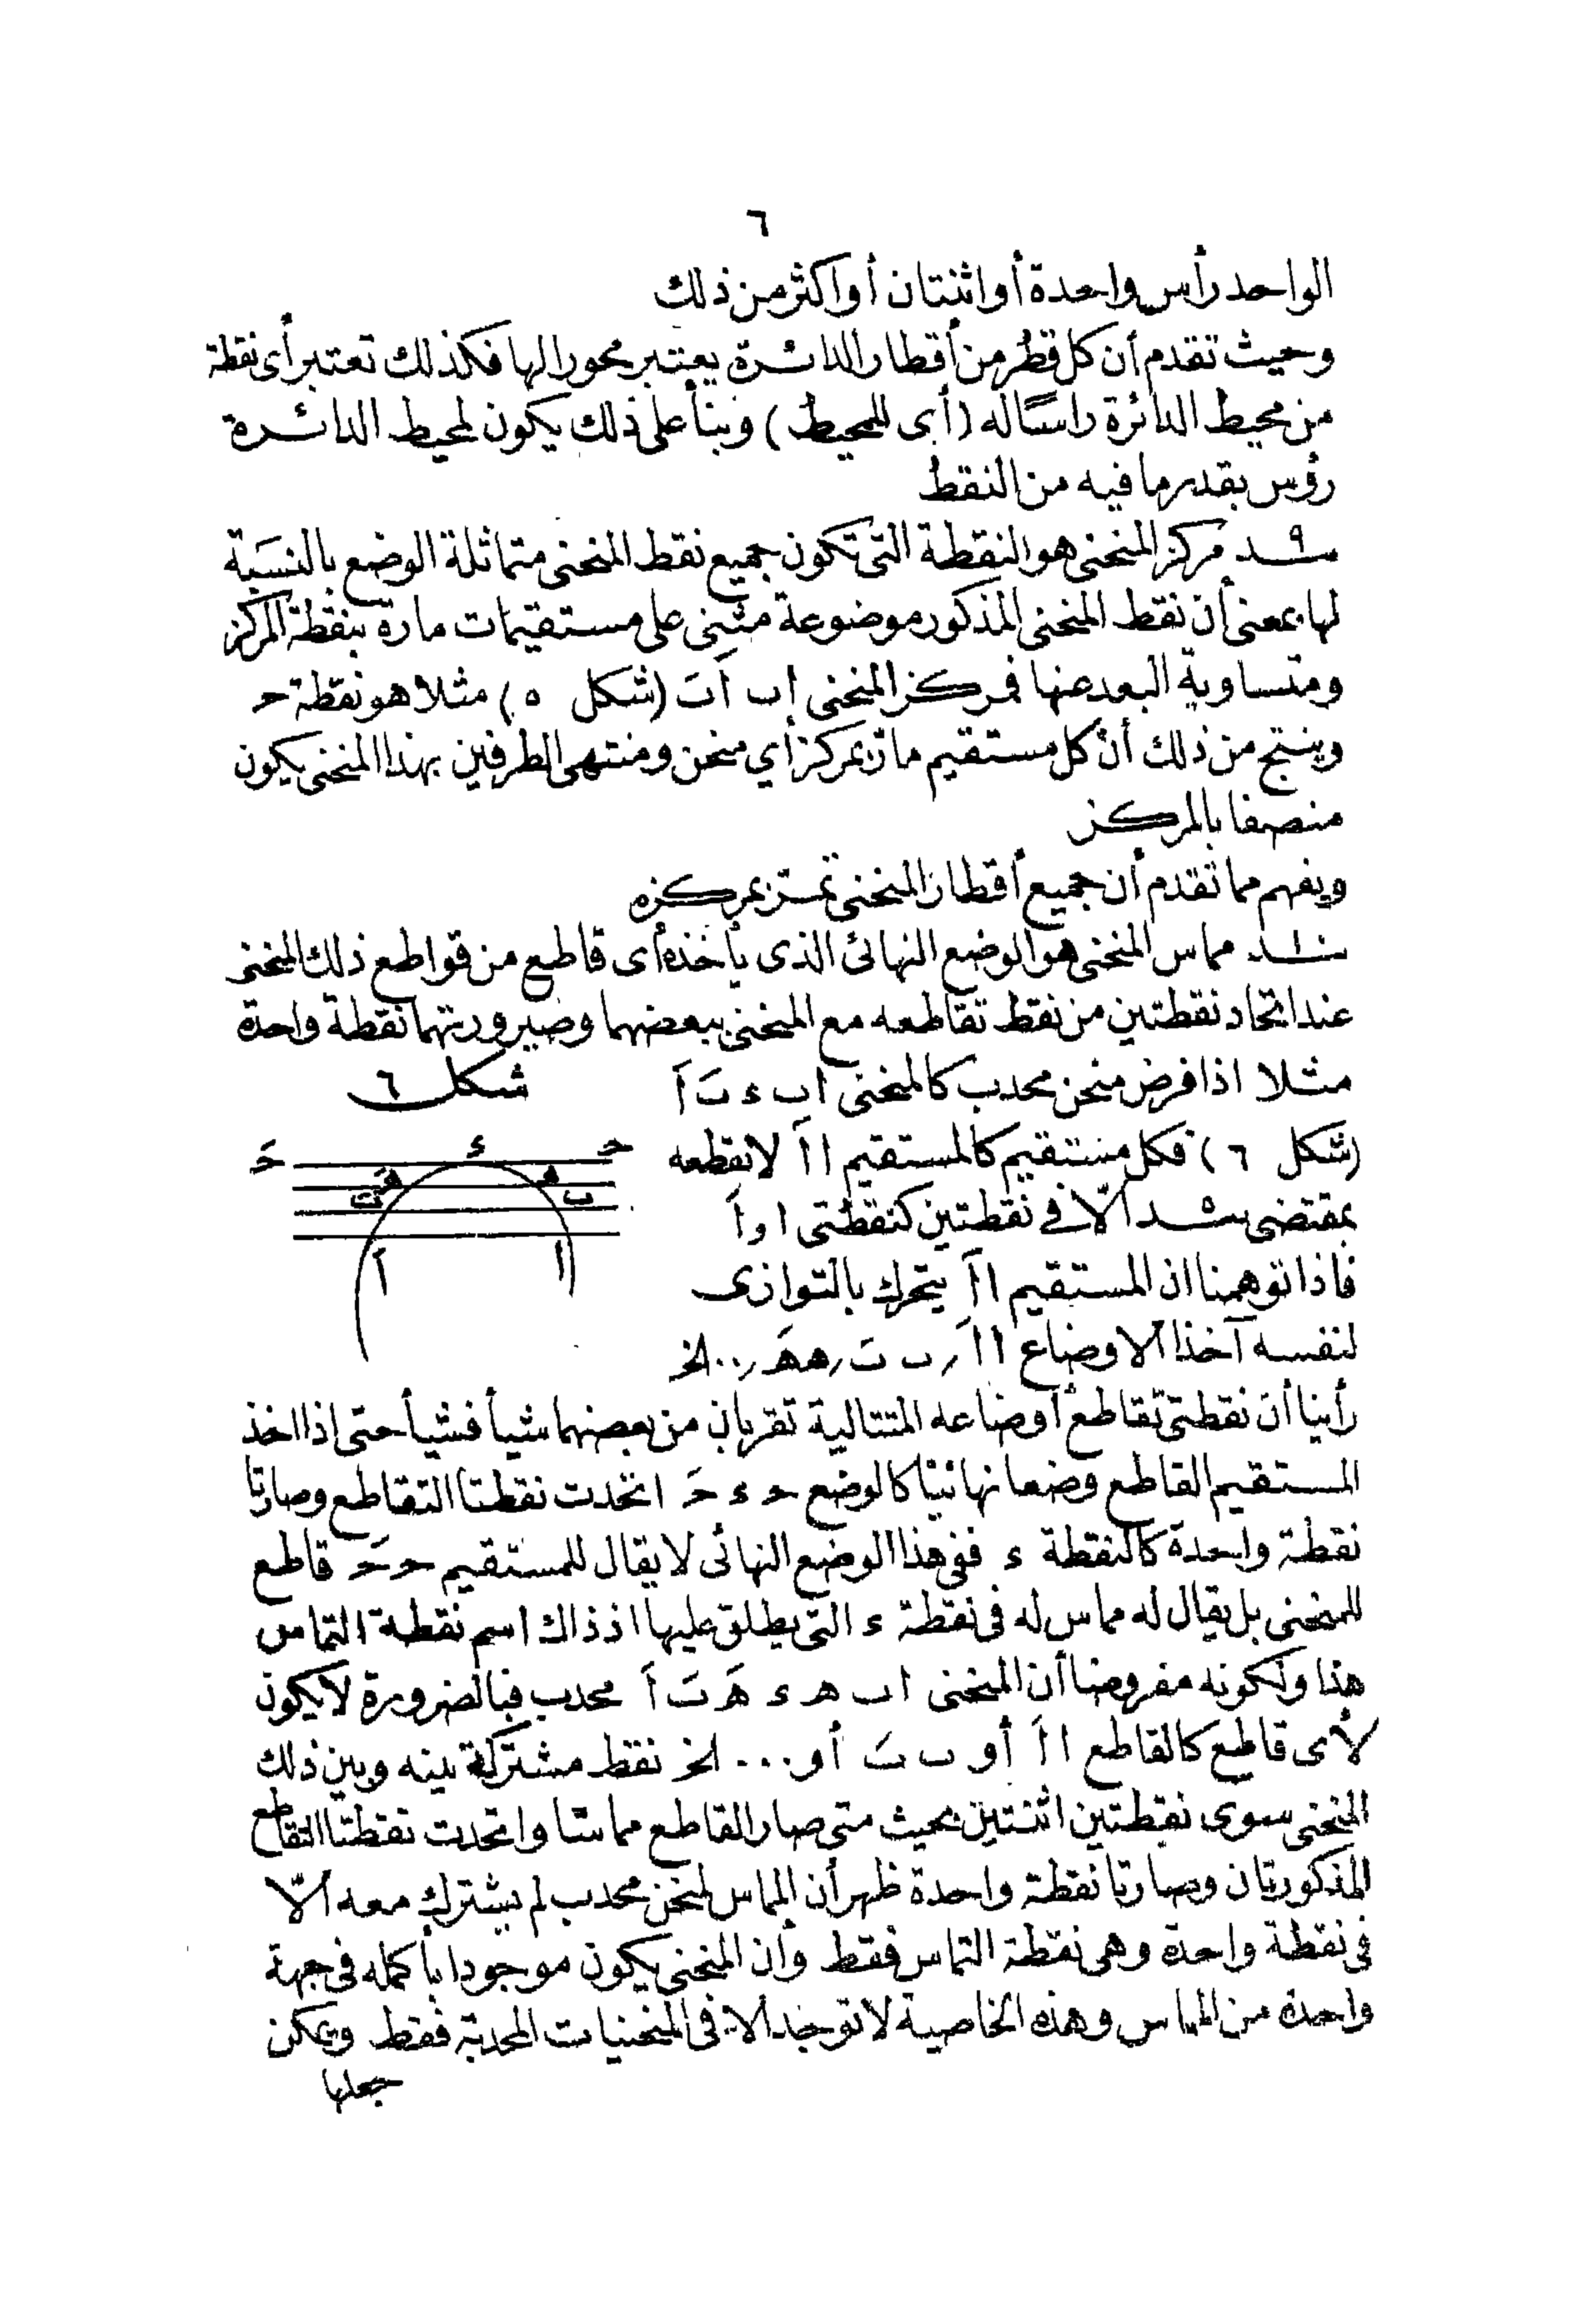 ٦
الواحد رأس واحدة أو اثنتان أو اكثر من ذلك
وحيث تقدم أن كل قطر من أقطار الدائرة يعتبر محورا لها فكذلك تعتبر أى نقطة
من محيط الدائرة راسًا له (أى للمحيط) وبنأ على ذلك يكون لمحيط الدائرة
رؤس بقدر ما فيه من النقط
٩ مركز المنحنى هو النقطة التى تكون جميع نقط المنحنى متماثلة الوضع بالنسبة
لها بمعنى أن نقط المنحنى المذكور موضوعة مثنى على مستقيمات مارة بنقطة المركز
ومتساوية البعد عنها فمركز المنحنى ا ب اَ بَ (شكل ٥) مثلا هو نقطة حـ
وينتج من ذلك أن كل مستقيم مار بمركز أي منحن ومنتهى الطرفين بهذا المنحنى يكون
منصفا بالمركز
ويفهم مما تقدم أن جميع أقطار المنحنى تمر بمركزه
١٠ مماس المنحنى هو الوضع النهائى الذى يأخذه أى قاطع من قواطع ذلك المنحنى
عند اتحاد نقطتين من نقط تقاطعه مع المنحنى ببعضهما وصيرورتهما نقطة واحدة
مثلا اذا فرض منحن محدب كالمنحنى ا ب ء بَ اَ
شكل ٦
(شكل ٦) فكل مستقيم كالمستقيم ا اَ لا يقطعه
حـ ء حَـ
هـ هَـ
ب بَ
ا اَ
بمقتضى الّا فى نقطتين كنقطتى ا و اَ
فاذا توهمنا ان المستقيم ا اَ يتحرك بالتوازى
لنفسه آخذا الاوضاع ا اَ ر ب بَ ر هـ هَـ ر ... الخ
رأينا أن نقطتى تقاطع أوضاعه المتتالية تقربان من بعضهما شيأ فشيأ حتى اذا اخذ
المستقيم القاطع وضعا نهائيًا كالوضع حـ ء حَـ اتحدت نقطتا التقاطع وصارتا
نقطة واحدة كالنقطة ء ففى هذا الوضع النهائى لا يقال للمستقيم حـ حَـ قاطع
للمنحنى بل يقال له مماس له فى نقطة ء التى يطلق عليها اذ ذاك اسم نقطة التماس
هذا ولكونه مفروضا أن المنحنى ا ب هـ ء هَـ بَ اَ محدب فبالضرورة لا يكون
لأى قاطع كالقاطع ا اَ أو ب بَ أو ... الخ نقط مشتركة بينه وبين ذلك
المنحنى سوى نقطتين اثنتين بحيث متى صار القاطع مماسّا واتحدت نقطتا التقاطع
المذكورتان وصارتا نقطة واحدة ظهر أن المماس لمنحن محدب لم يشترك معه الّا
فى نقطة واحدة وهى نقطة التماس فقط وأن المنحنى يكون موجودا بأكمله فى جهة
واحدة من المماس وهذه الخاصية لا توجد الا فى المنحنيات المحدبة فقط ويمكن
جعلها